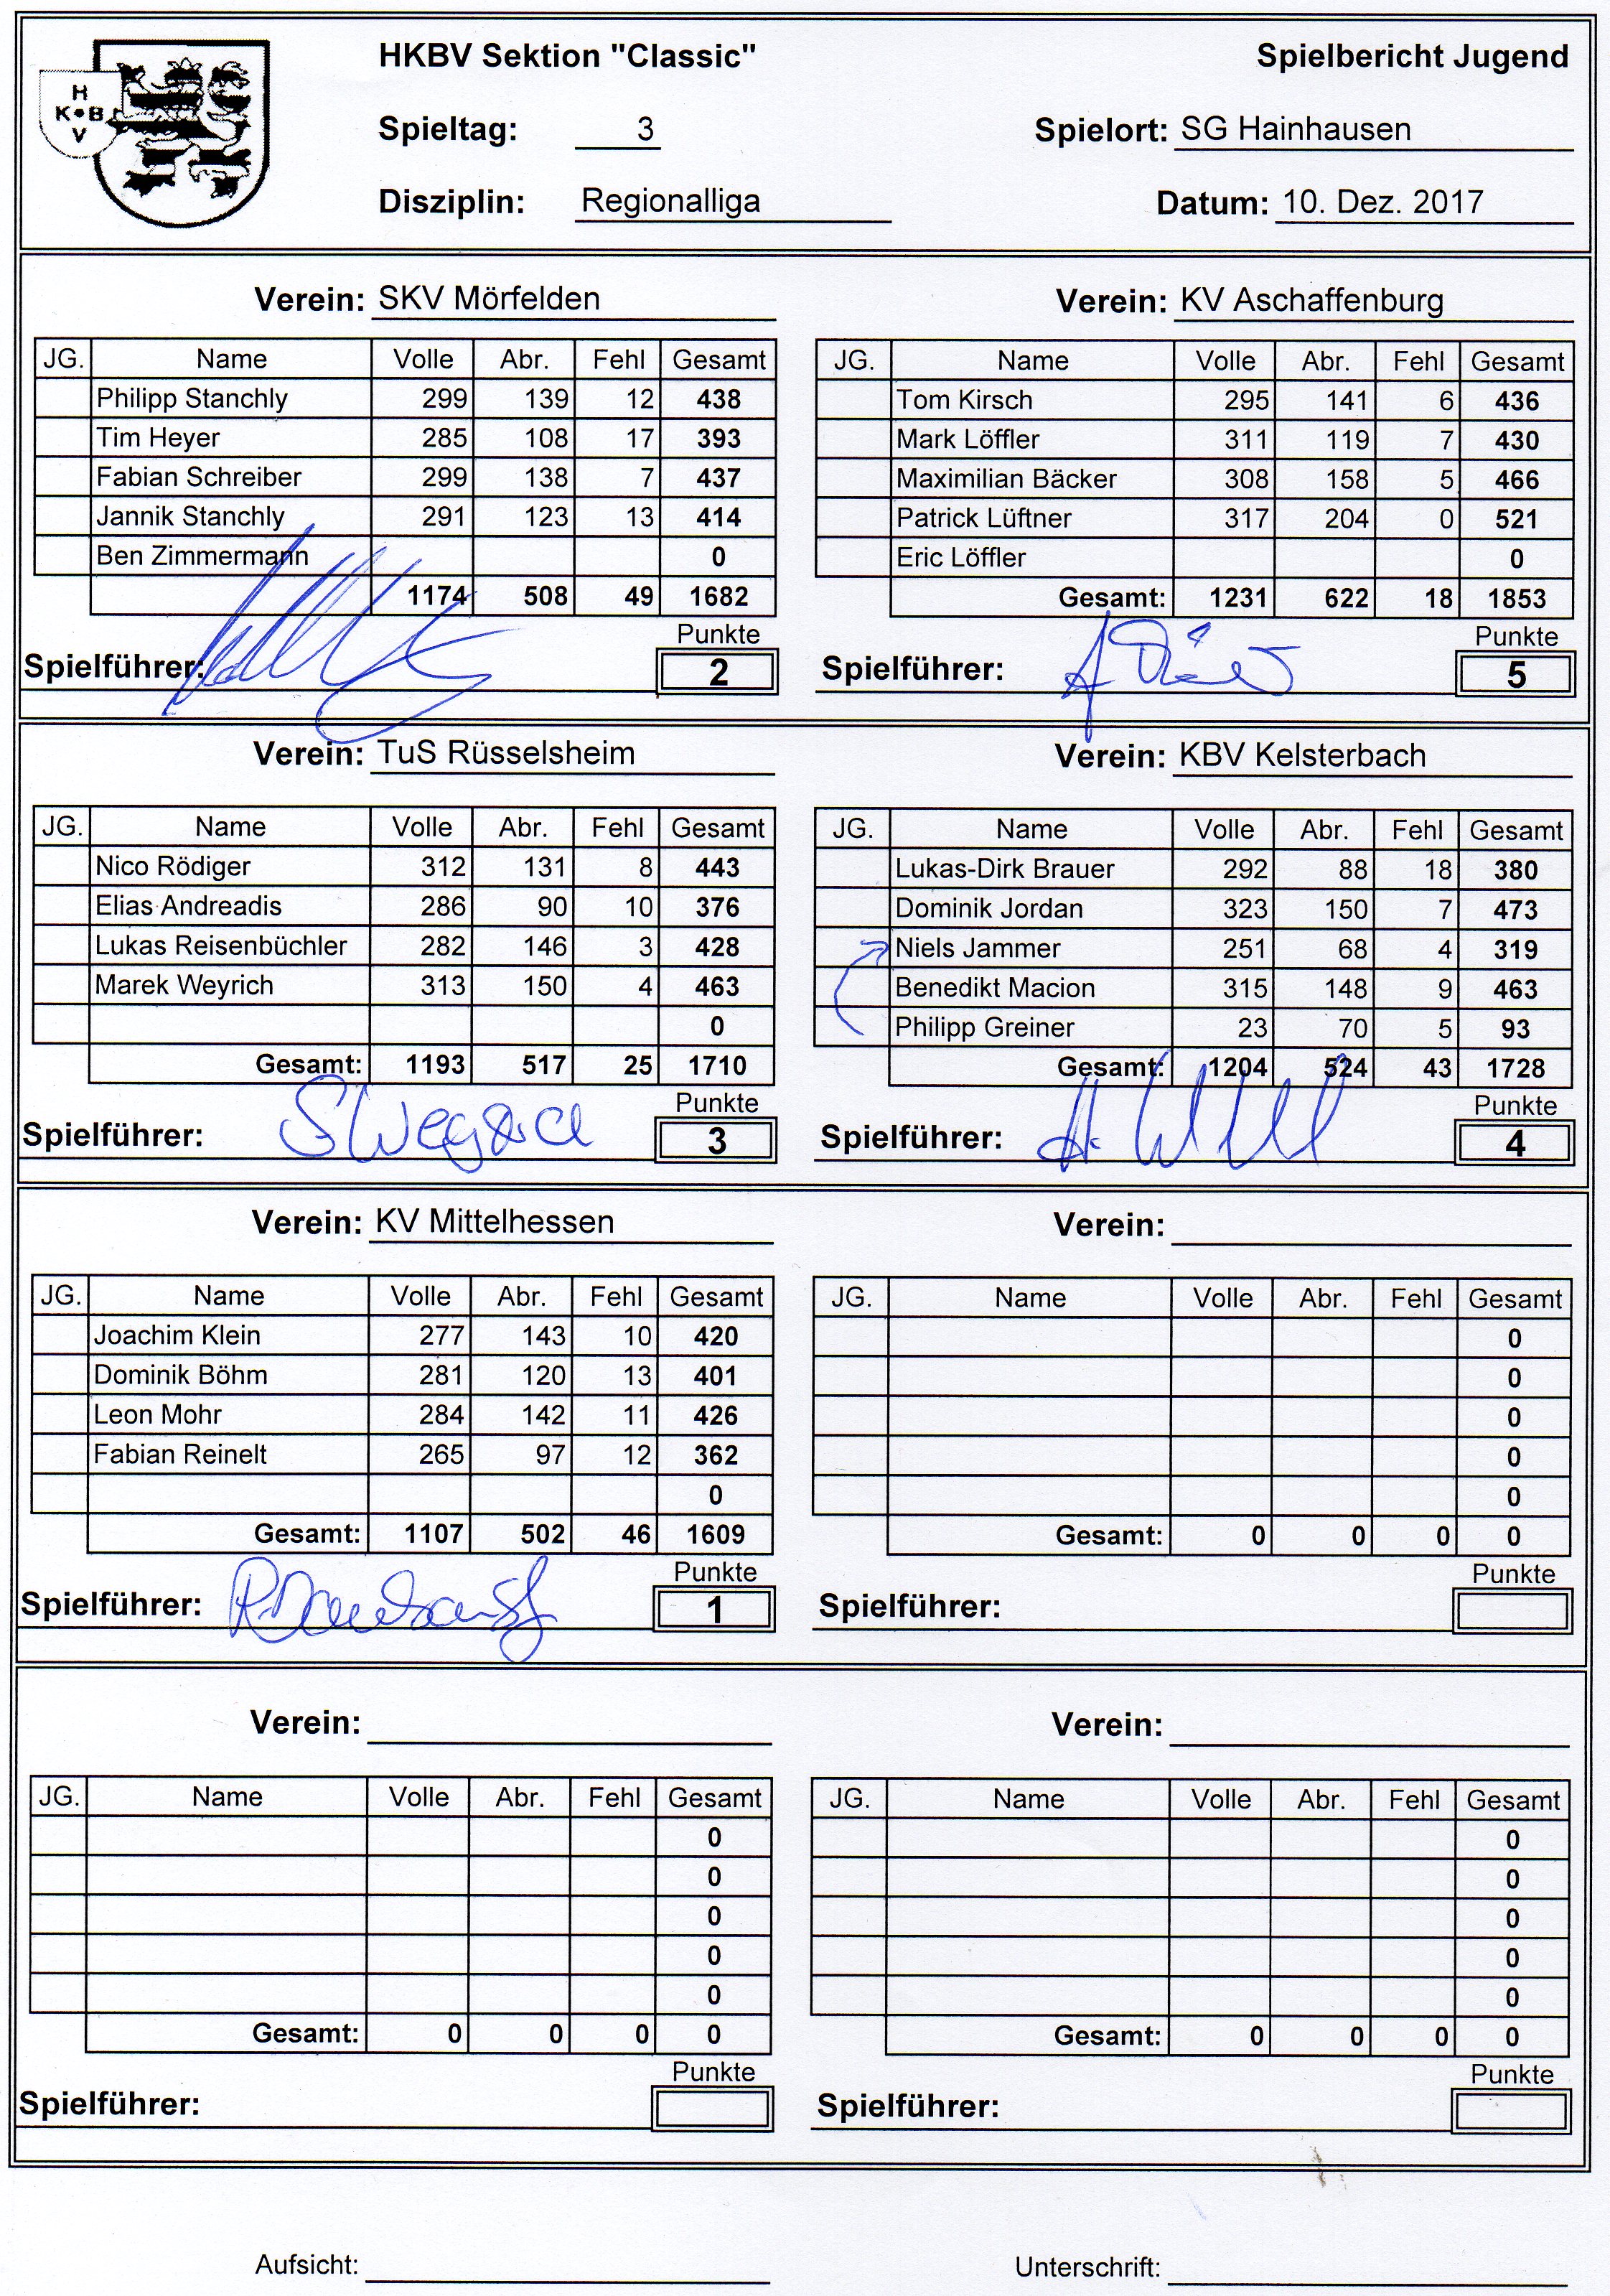 H
K•B
V
HKBV Sektion "Classic" Spielbericht Jugend
Spieltag: 3 Spielort: SG Hainhausen
Disziplin: Regionalliga Datum: 10. Dez. 2017
Verein: SKV Mörfelden
JG. Name Volle Abr. Fehl Gesamt
Philipp Stanchly 299 139 12 438
Tim Heyer 285 108 17 393
Fabian Schreiber 299 138 7 437
Jannik Stanchly 291 123 13 414
Ben Zimmermann 0
1174 508 49 1682
Punkte
Spielführer: 2
Verein: KV Aschaffenburg
JG. Name Volle Abr. Fehl Gesamt
Tom Kirsch 295 141 6 436
Mark Löffler 311 119 7 430
Maximilian Bäcker 308 158 5 466
Patrick Lüftner 317 204 0 521
Eric Löffler 0
Gesamt: 1231 622 18 1853
Punkte
Spielführer: 5
Verein: TuS Rüsselsheim
JG. Name Volle Abr. Fehl Gesamt
Nico Rödiger 312 131 8 443
Elias Andreadis 286 90 10 376
Lukas Reisenbüchler 282 146 3 428
Marek Weyrich 313 150 4 463
0
Gesamt: 1193 517 25 1710
Punkte
Spielführer: 3
Verein: KBV Kelsterbach
JG. Name Volle Abr. Fehl Gesamt
Lukas-Dirk Brauer 292 88 18 380
Dominik Jordan 323 150 7 473
Niels Jammer 251 68 4 319
Benedikt Macion 315 148 9 463
Philipp Greiner 23 70 5 93
Gesamt: 1204 524 43 1728
Punkte
Spielführer: 4
Verein: KV Mittelhessen
JG. Name Volle Abr. Fehl Gesamt
Joachim Klein 277 143 10 420
Dominik Böhm 281 120 13 401
Leon Mohr 284 142 11 426
Fabian Reinelt 265 97 12 362
0
Gesamt: 1107 502 46 1609
Punkte
Spielführer: 1
Verein:
JG. Name Volle Abr. Fehl Gesamt
0
0
0
0
0
Gesamt: 0 0 0 0
Punkte
Spielführer:
Verein:
JG. Name Volle Abr. Fehl Gesamt
0
0
0
0
0
Gesamt: 0 0 0 0
Punkte
Spielführer:
Verein:
JG. Name Volle Abr. Fehl Gesamt
0
0
0
0
0
Gesamt: 0 0 0 0
Punkte
Spielführer:
Aufsicht: Unterschrift: